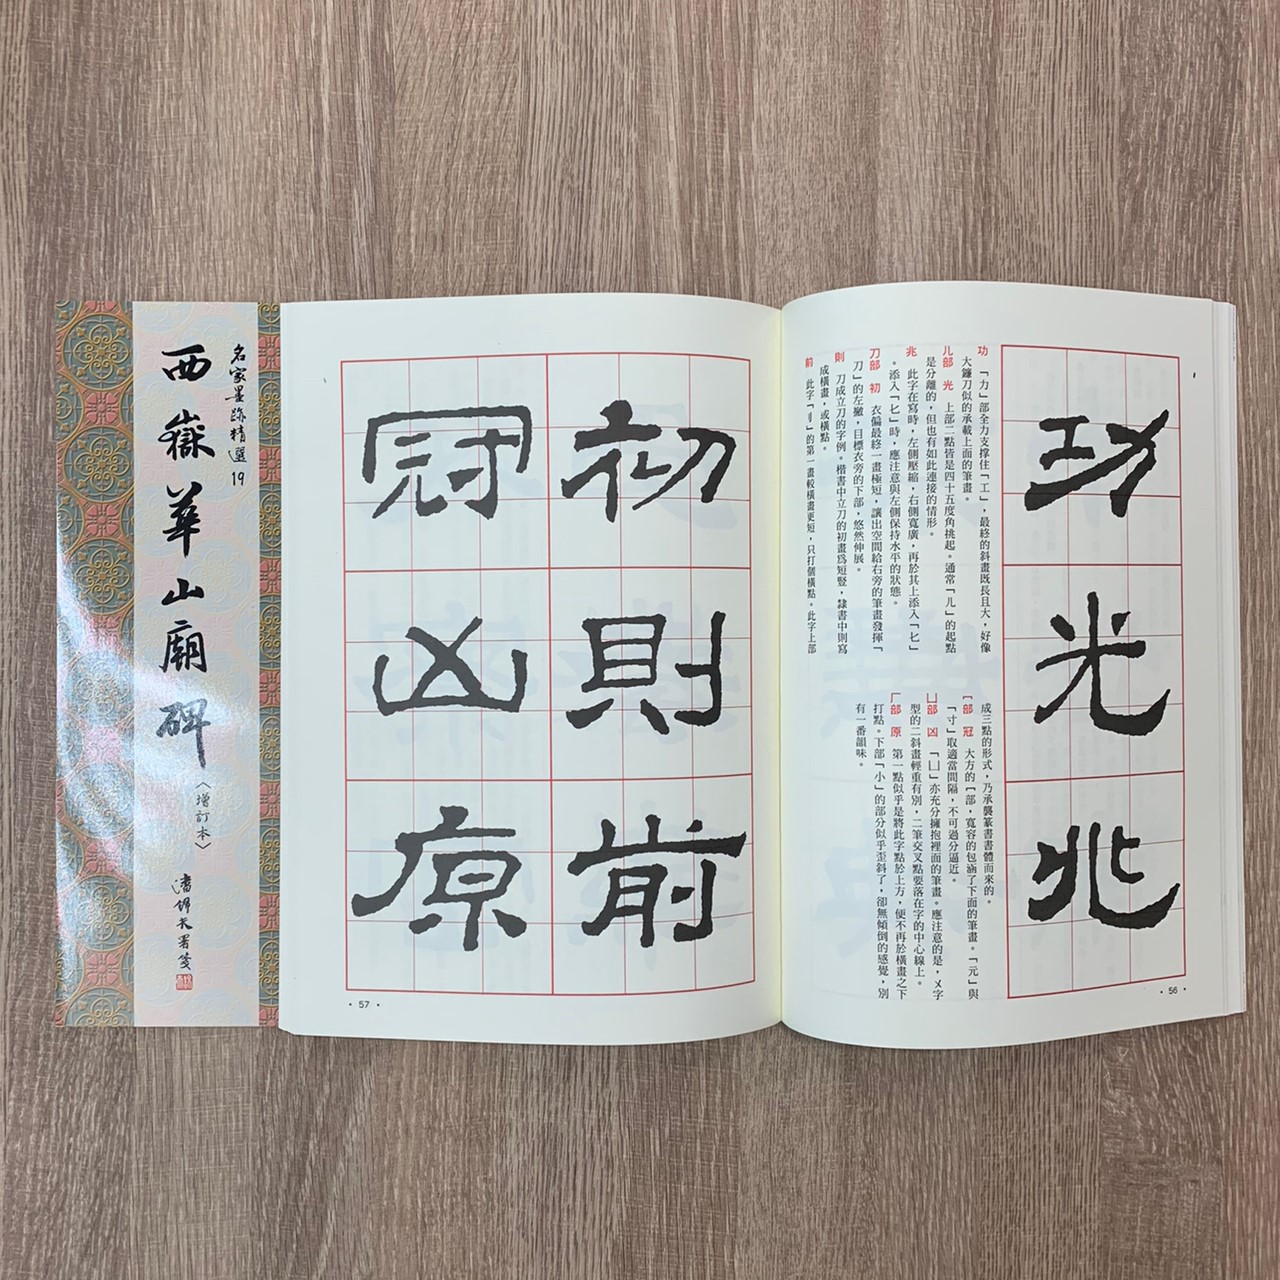 名家墨跡精選19
西嶽華山廟碑
〈增訂本〉
署箋
功
光
兆
功 「力」部全力支撐住「工」，最終的斜畫既長且大，好像
大鐮刀似的承載上面的筆畫。
儿部 光 上部二點皆是四十五度角挑起。通常「儿」的起點
是分離的，但也有如此連接的情形。
兆 此字在寫時，左側壓縮，右側寬廣，再於其上添入「匕」
。添入「匕」時，應注意與左側保持水平的狀態。
刀部 初 衣偏最終一畫極短，讓出空間給右旁的筆畫發揮「
刀」的左撇，目標衣旁的下部，悠然伸展。
則 刀成立刀的字例。楷書中立刀的初畫爲短豎，隸書中則寫
成橫畫，或橫點。
前 此字「刂」的第一畫較橫畫更短，只打個橫點。此字上部
成三點的形式，乃承襲篆書書體而來的。
冖部 冠 大方的冖部，寬容的包涵了下面的筆畫。「元」與
「寸」取適當間隔，不可過分逼近。
凵部 凶 「凵」亦充分擁抱裡面的筆畫。應注意的是，乂字
型的二斜畫輕重有別，二筆交叉點要落在字的中心線上。
厂部 原 第一點似乎是將此字點於上方，便不再於橫畫之下
打點。下部「小」的部分似乎歪斜了，卻無傾倒的感覺，別
有一番韻味。
• 56 •
初
則
前
冠
凶
原
• 57 •